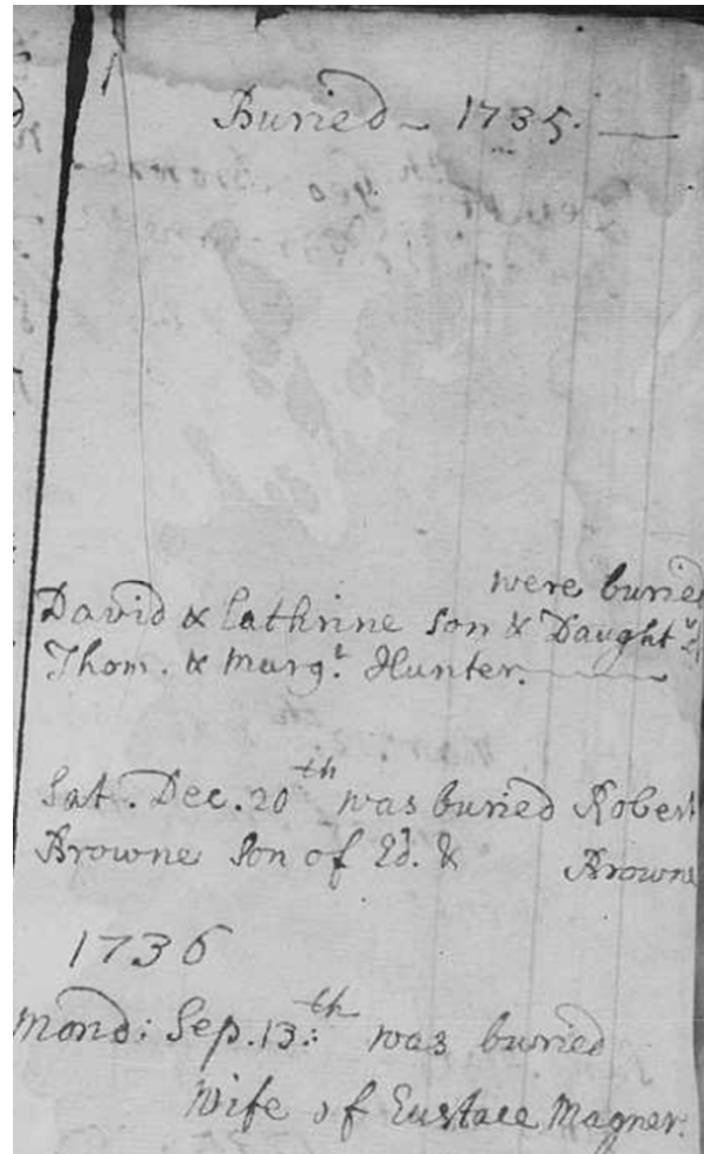 Buried - 1735.
were buried
David & Cathrine son & Daught.r of
Thom. & Marg.t Hunter.
Sat. Dec. 20th was buried Robert
Browne son of Ed. & Browne
1736
Mond: Sep. 13:th was buried
Wife of Eustace Magner.